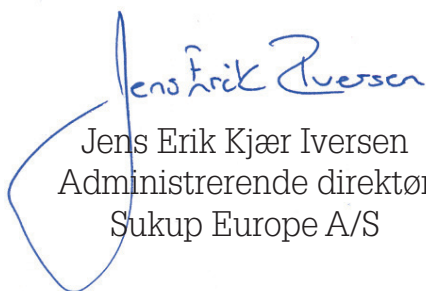 Jens Erik Iversen
Jens Erik Kjær Iversen
Administrerende direktør
Sukup Europe A/S